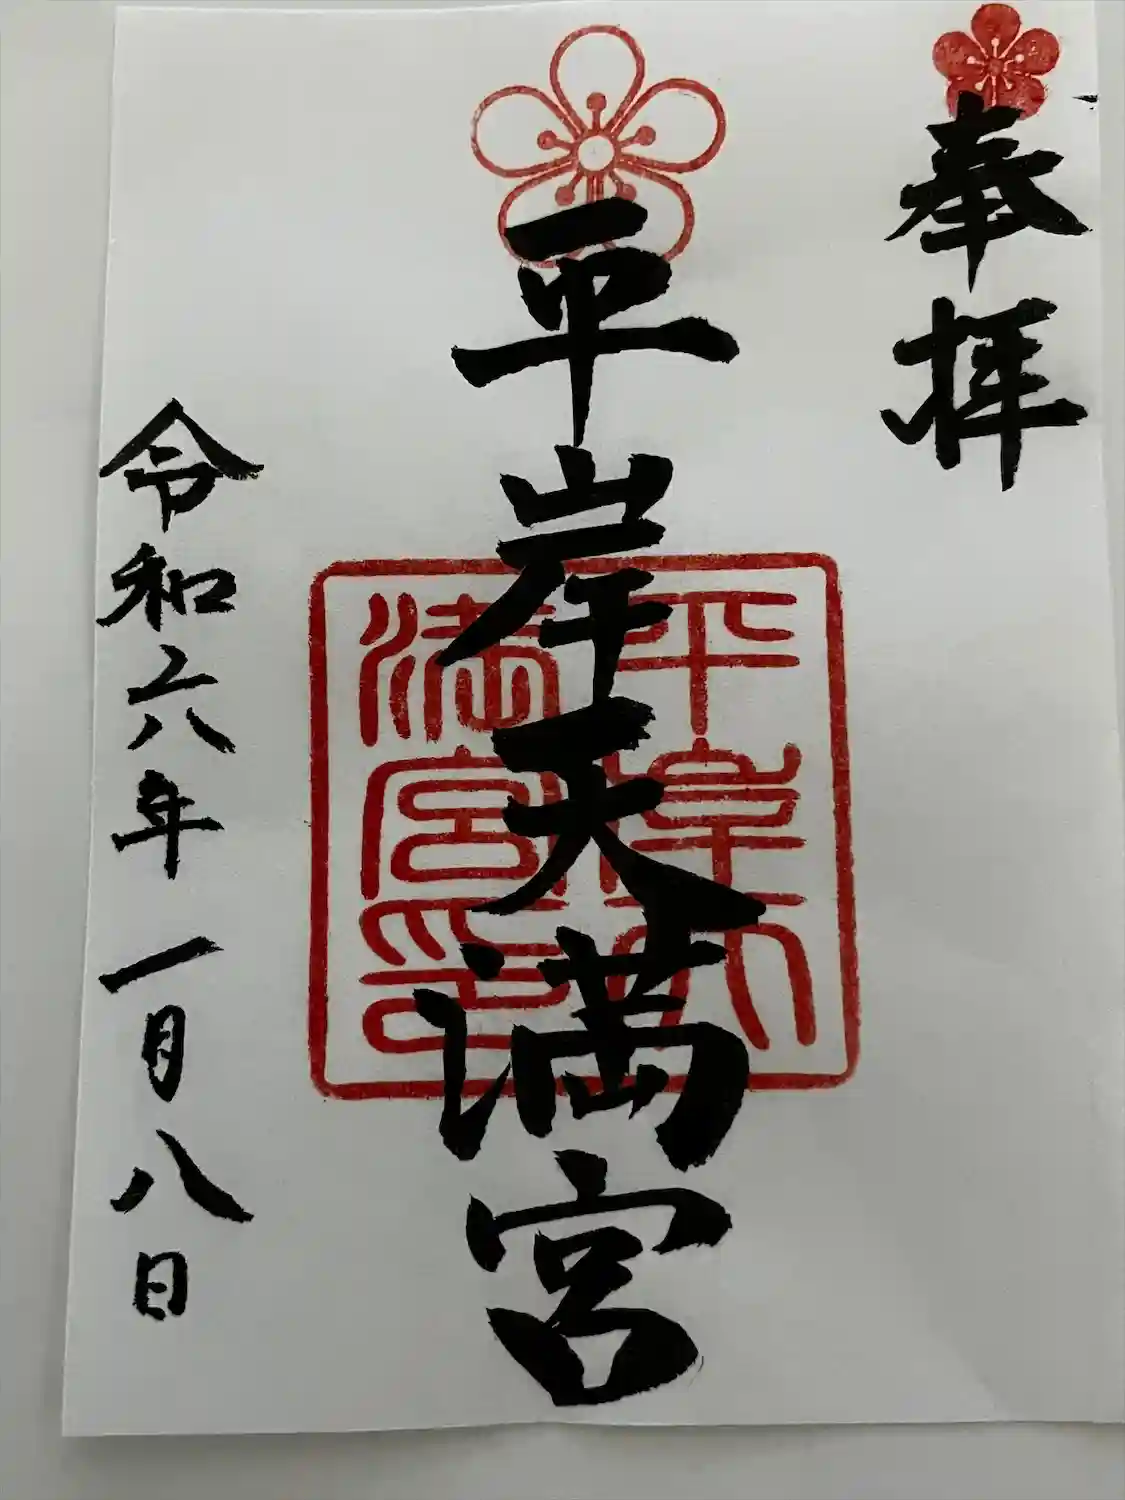 奉拝
平岸天満宮
平岸天
満宮印
令和六年一月八日